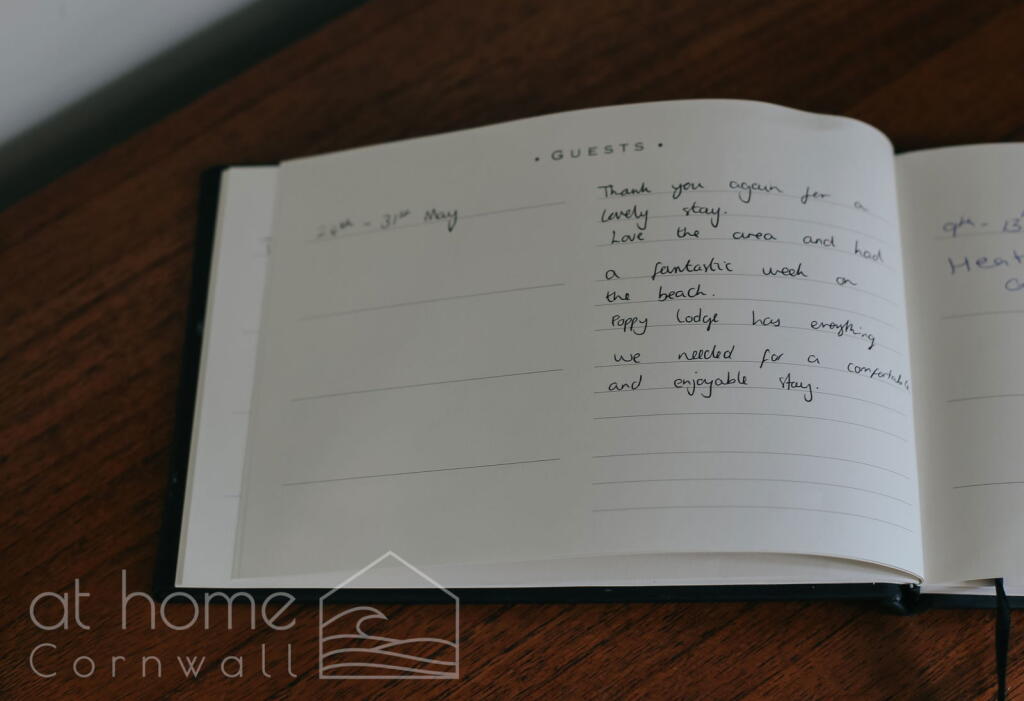 • GUESTS •
24th - 31st May
Thank you again for a
lovely stay.
Love the area and had
a fantastic week on
the beach.
Poppy Lodge has everything
we needed for a comfortable
and enjoyable stay.
9th - 13
at home
Cornwall